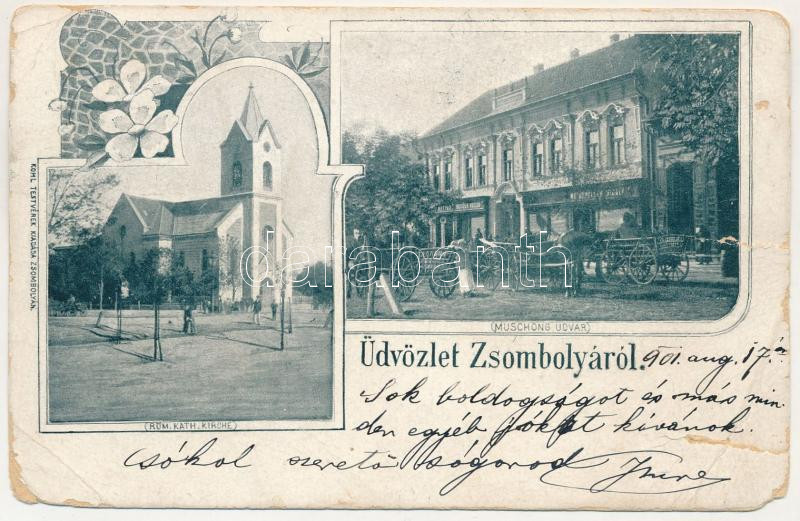 KOHL TESTVÉREK KIADÁSA ZSOMBOLYÁN.
(RÖM. KATH. KIRCHE)
(MUSCHONG UDVAR)
darabanth
Üdvözlet Zsombolyáról.
901. aug. 17-én
Sok boldogságot és más min
den egyéb jókat kívánok.
csókol szerető sógorod Imre